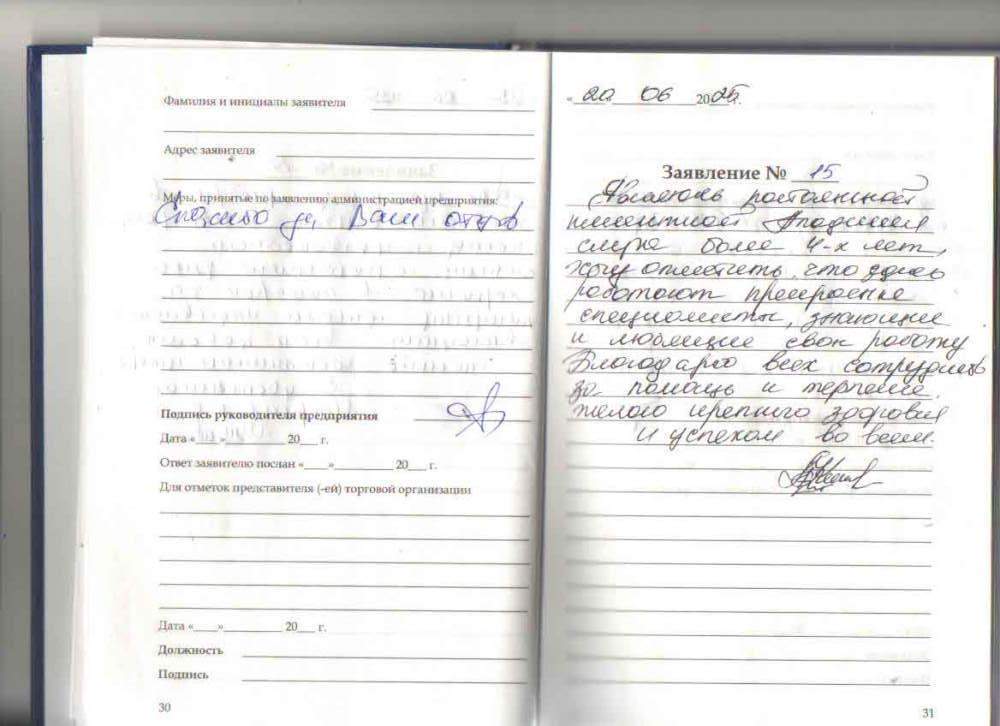 Фамилия и инициалы заявителя
Адрес заявителя
Меры, принятые по заявлению администрацией предприятия:
Спасибо за Ваш отзыв
Подпись руководителя предприятия
Дата «____»__________ 20___ г.
Ответ заявителю послан «____»__________ 20___ г.
Для отметок представителя (-ей) торговой организации
Дата «____»__________ 20___ г.
Должность
Подпись
30
«20» 06 2025г.
Заявление № 15
Являюсь постоянной
клиенткой
более 4-х лет,
хочу отметить, что здесь
работают прекрасные
специалисты, знающие
и любящие свою работу
Благодарю всех сотрудников
за помощь и терпение.
желаю крепкого здоровья
и успехов во всем.
31